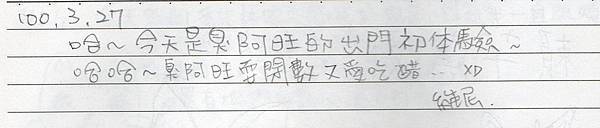 100.3.27
哈~今天是臭阿旺的出門初体驗~
哈哈~臭阿旺要閉數又愛吃醋.. XD
維尼.